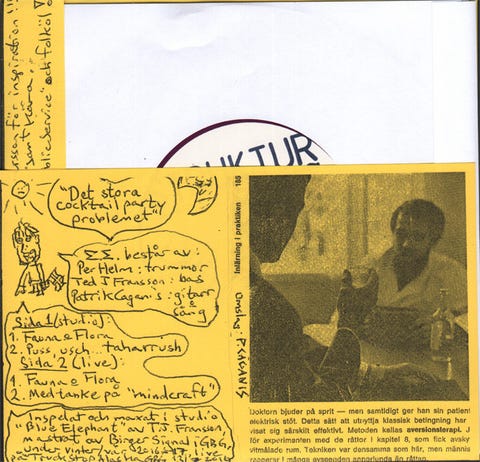 för inspiration !!
samt Klara.
"och folköl
STRUKTUR
"Det stora
cocktailparty
problemet"
Σ.Σ. består av:
Per Helm : trummor
Ted J Fransson : bas
Patrik Caganis : gitarr
& sång
Sida 1 (studio):
1. Fauna & Flora
2. Puss, usch... taharrush
Sida 2 (live):
1. Fauna & Flora
2. Med tanke på "mindcraft"
Inspelat och mixat i studio
"Blue Elephant" av T.J. Fransson,
mastrat av Birger Signal i GBG,
under vinter/vår
Inlärning i praktiken
185
Omslag: P. CAGANIS
Doktorn bjuder på sprit — men samtidigt ger han sin patient
elektrisk stöt. Detta sätt att utnyttja klassisk betingning har
visat sig särskilt effektivt. Metoden kallas aversionsterapi. J
för experimenten med de råttor i kapitel 8, som fick avsky
vitmålade rum. Tekniken var densamma som här, men människ
reagerar i många avseenden annorlunda än råttan.